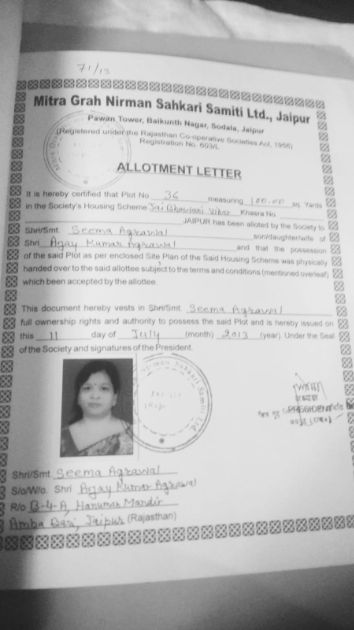 71/13
Mitra Grah Nirman Sahkari Samiti Ltd., Jaipur
Pawan Tower, Baikunth Nagar, Sodala, Jaipur
(Registered under the Rajasthan Co-operative Societies Act, 1965)
Registration No. 603/L
ALLOTMENT LETTER
It is hereby certified that Plot No. 36 measuring 100.00 Sq. Yards
in the Society's Housing Scheme Jai Bhawani Vihar Khasra No.
JAIPUR has been alloted by the Society to
Shri/Smt. Seema Agrawal son/daughter/wife of
Shri Ajay Kumar Agrawal and that the possession
of the said Plot as per enclosed Site Plan of the Said Housing Scheme was physically
handed over to the said allottee subject to the terms and conditions (mentioned overleaf)
which been accepted by the allottee.
This document hereby vests in Shri/Smt. Seema Agrawal
full ownership rights and authority to possess the said Plot and is hereby issued on
this 11 day of July (month) 2013 (year) Under the Seal
of the Society and signatures of the President.
PRESIDENT
Shri/Smt. Seema Agrawal
S/o/W/o. Shri Ajay Kumar Agrawal
R/o B-4-A, Hanuman Mandir
Amba Bari, Jaipur (Rajasthan)